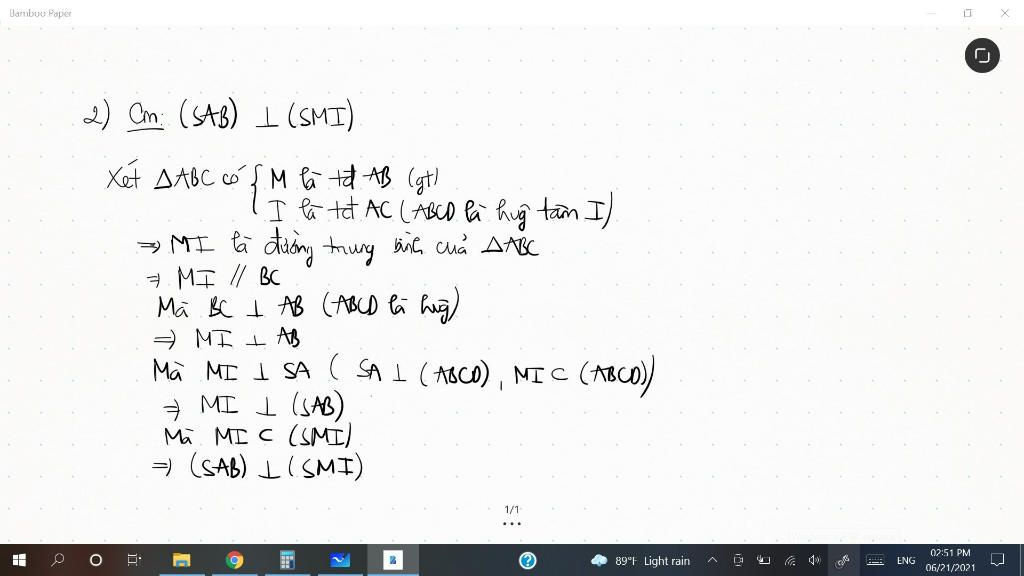 Bamboo Paper
2) Cm: (SAB) ⊥ (SMI)
Xét ΔABC có { M là tđ AB (gt)
I là tđ AC (ABCD là hvg tâm I)
⇒ MI là đường trung bình của ΔABC
⇒ MI // BC
Mà BC ⊥ AB (ABCD là hvg)
⇒ MI ⊥ AB
Mà MI ⊥ SA ( SA ⊥ (ABCD), MI ⊂ (ABCD))
⇒ MI ⊥ (SAB)
Mà MI ⊂ (SMI)
⇒ (SAB) ⊥ (SMI)
1/1
89°F Light rain
ENG
02:51 PM
06/21/2021